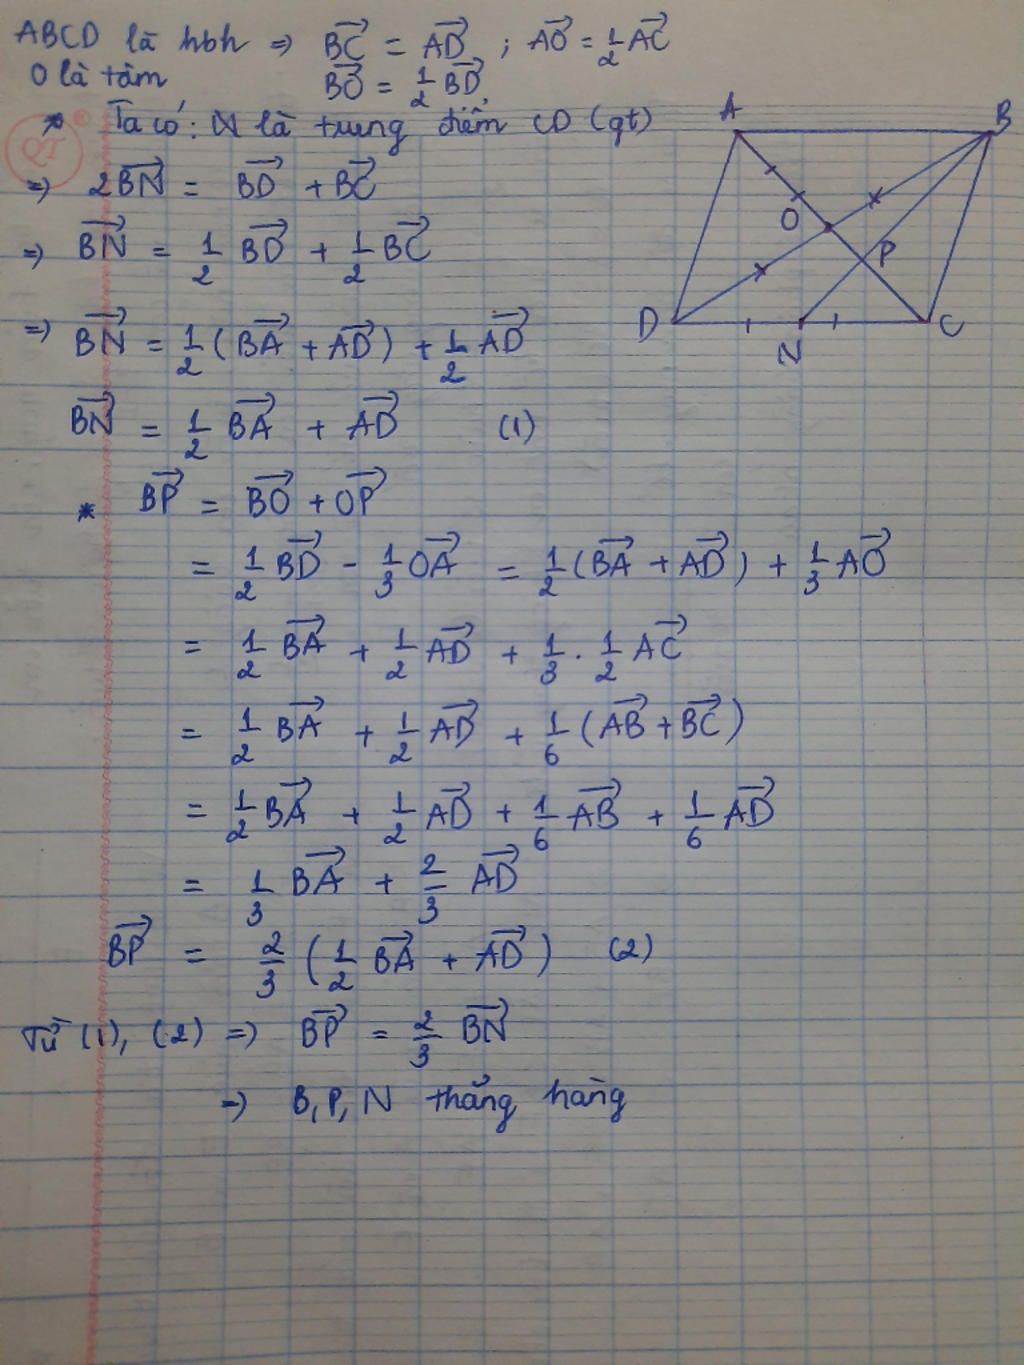 ABCD là hbh ⇒ $\overrightarrow{BC} = \overrightarrow{AD}$ ; $\overrightarrow{AO} = \frac{1}{2}\overrightarrow{AC}$
O là tâm $\overrightarrow{BO} = \frac{1}{2}\overrightarrow{BD}$
* Ta có: N là trung điểm CD (gt)
QT
⇒ $2\overrightarrow{BN} = \overrightarrow{BD} + \overrightarrow{BC}$
⇒ $\overrightarrow{BN} = \frac{1}{2}\overrightarrow{BD} + \frac{1}{2}\overrightarrow{BC}$
⇒ $\overrightarrow{BN} = \frac{1}{2}(\overrightarrow{BA} + \overrightarrow{AD}) + \frac{1}{2}\overrightarrow{AD}$
$\overrightarrow{BN} = \frac{1}{2}\overrightarrow{BA} + \overrightarrow{AD}$ (1)
* $\overrightarrow{BP} = \overrightarrow{BO} + \overrightarrow{OP}$
$= \frac{1}{2}\overrightarrow{BD} - \frac{1}{3}\overrightarrow{OA} = \frac{1}{2}(\overrightarrow{BA} + \overrightarrow{AD}) + \frac{1}{3}\overrightarrow{AO}$
$= \frac{1}{2}\overrightarrow{BA} + \frac{1}{2}\overrightarrow{AD} + \frac{1}{3}.\frac{1}{2}\overrightarrow{AC}$
$= \frac{1}{2}\overrightarrow{BA} + \frac{1}{2}\overrightarrow{AD} + \frac{1}{6}(\overrightarrow{AB} + \overrightarrow{BC})$
$= \frac{1}{2}\overrightarrow{BA} + \frac{1}{2}\overrightarrow{AD} + \frac{1}{6}\overrightarrow{AB} + \frac{1}{6}\overrightarrow{AD}$
$= \frac{1}{3}\overrightarrow{BA} + \frac{2}{3}\overrightarrow{AD}$
$\overrightarrow{BP} = \frac{2}{3}(\frac{1}{2}\overrightarrow{BA} + \overrightarrow{AD})$ (2)
Từ (1), (2) ⇒ $\overrightarrow{BP} = \frac{2}{3}\overrightarrow{BN}$
⇒ B, P, N thẳng hàng
A B
O
P
D N C